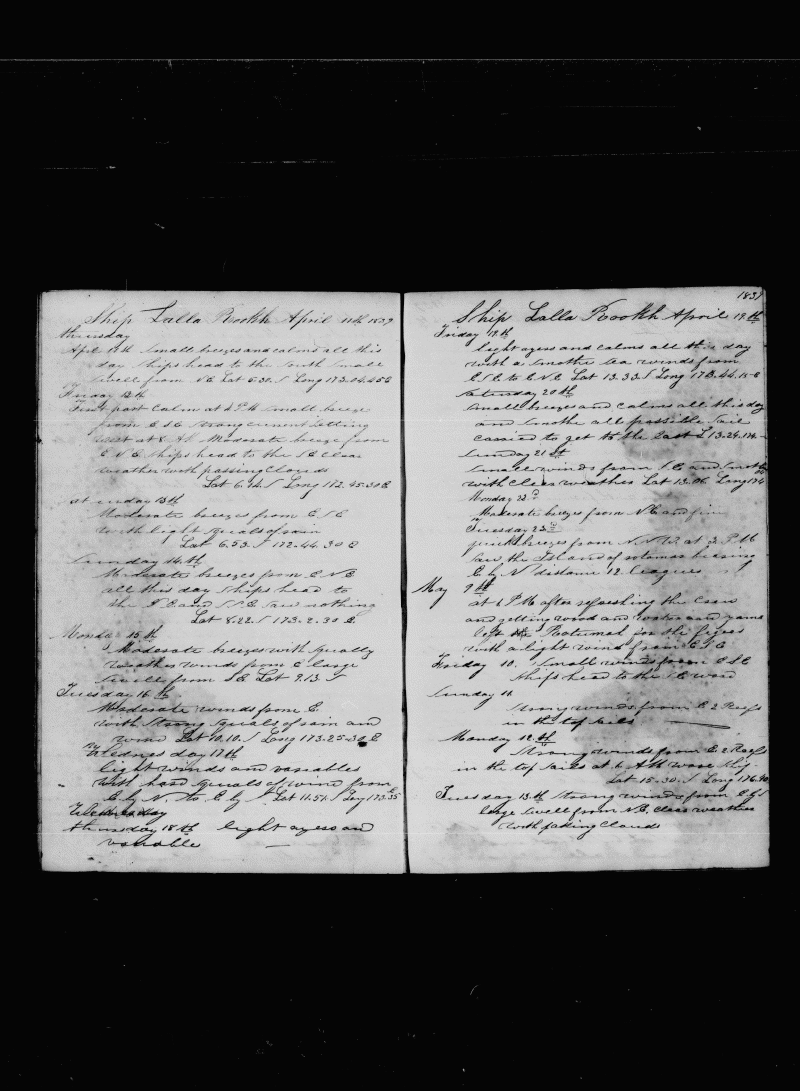 Ship Lalla Rookh April 11th 1839
thursday
April 11th Small breezes and calms all this
day Ships head to the South Small
Swell from NE Lat 5.30. S Long 173.04.45 E
Friday 12th
First part Calm at 4 PM Small breeze
from E S E Strong current Setting
West at 8 AM Moderate breeze from
E N E Ships head to the S E Clear
weather with passing Clouds
Lat 6.12. S Long 172.45.30 E
Saturday 13th
Moderate breezes from E S E
with light Squals of rain
Lat 6.53. S 172.44.30 E
Sunday 14th
Moderate breezes from E N E
all this day Ships head to
the S E and Saw nothing
Lat 8.22. S 173.2.30 E.
Monday 15th
Moderate breezes with Squally
weather winds from E large
Swell from S E Lat 9.13 S
Tuesday 16th
Moderate winds from E.
with Strong Squals of rain and
wind Lat 10.10. S Long 173.25.30 E
Wednesday 17th
light winds and variables
with hard Squals of wind from
E by N. to E by S Lat 11.51. S Long 173.35
Wednesday
thursday 18th light ayess and
variable
1839
Ship Lalla Rookh April 19th
Friday 19th
light ayess and calms all this day
with a Smothe Sea winds from
E S E to E N E Lat 13.33. S Long 173.44.15 E
Saturday 20th
Small breezes and calms all this day
and Smothe all possible Sail
carried to get to the East L 13.24.174
Sunday 21st
Small winds from S E and Smothe
with clear weather Lat 13.06. Long 174
Monday 22d
Moderate breezes from N E and fine
Tuesday 23d
quick breezes from N. N W. at 3. P M
Saw the Island of rotumar bearing
E by N distance 12 leagues
May 9th
at 4 PM after refreshing the Crew
and getting wood and water and yams
left Rotumah for the fegees
with a light wind from E S E
Friday 10. Small winds from E S E
Ships head to the S E ward
Sunday 11
Strong winds from E 2 Reefs
in the top Sails
Monday 12th
Strong winds from E. 2 Reefs
in the top Sails at 6 AM wore Ship
Lat 15.30. S Long 176.40
Tuesday 13th Strong winds from E S E
large Swell from N E, clear weather
with passing Clouds